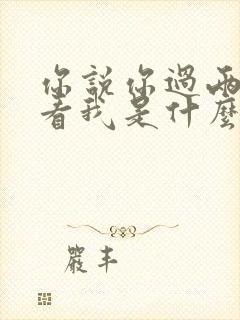 你說你過兩
看我是什麼
嚴丰